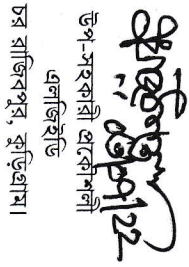 ০৩|০৭|২২
উপ-সহকারি প্রকৌশলী
এলজিইডি
চর রাজিবপুর, কুড়িগ্রাম।